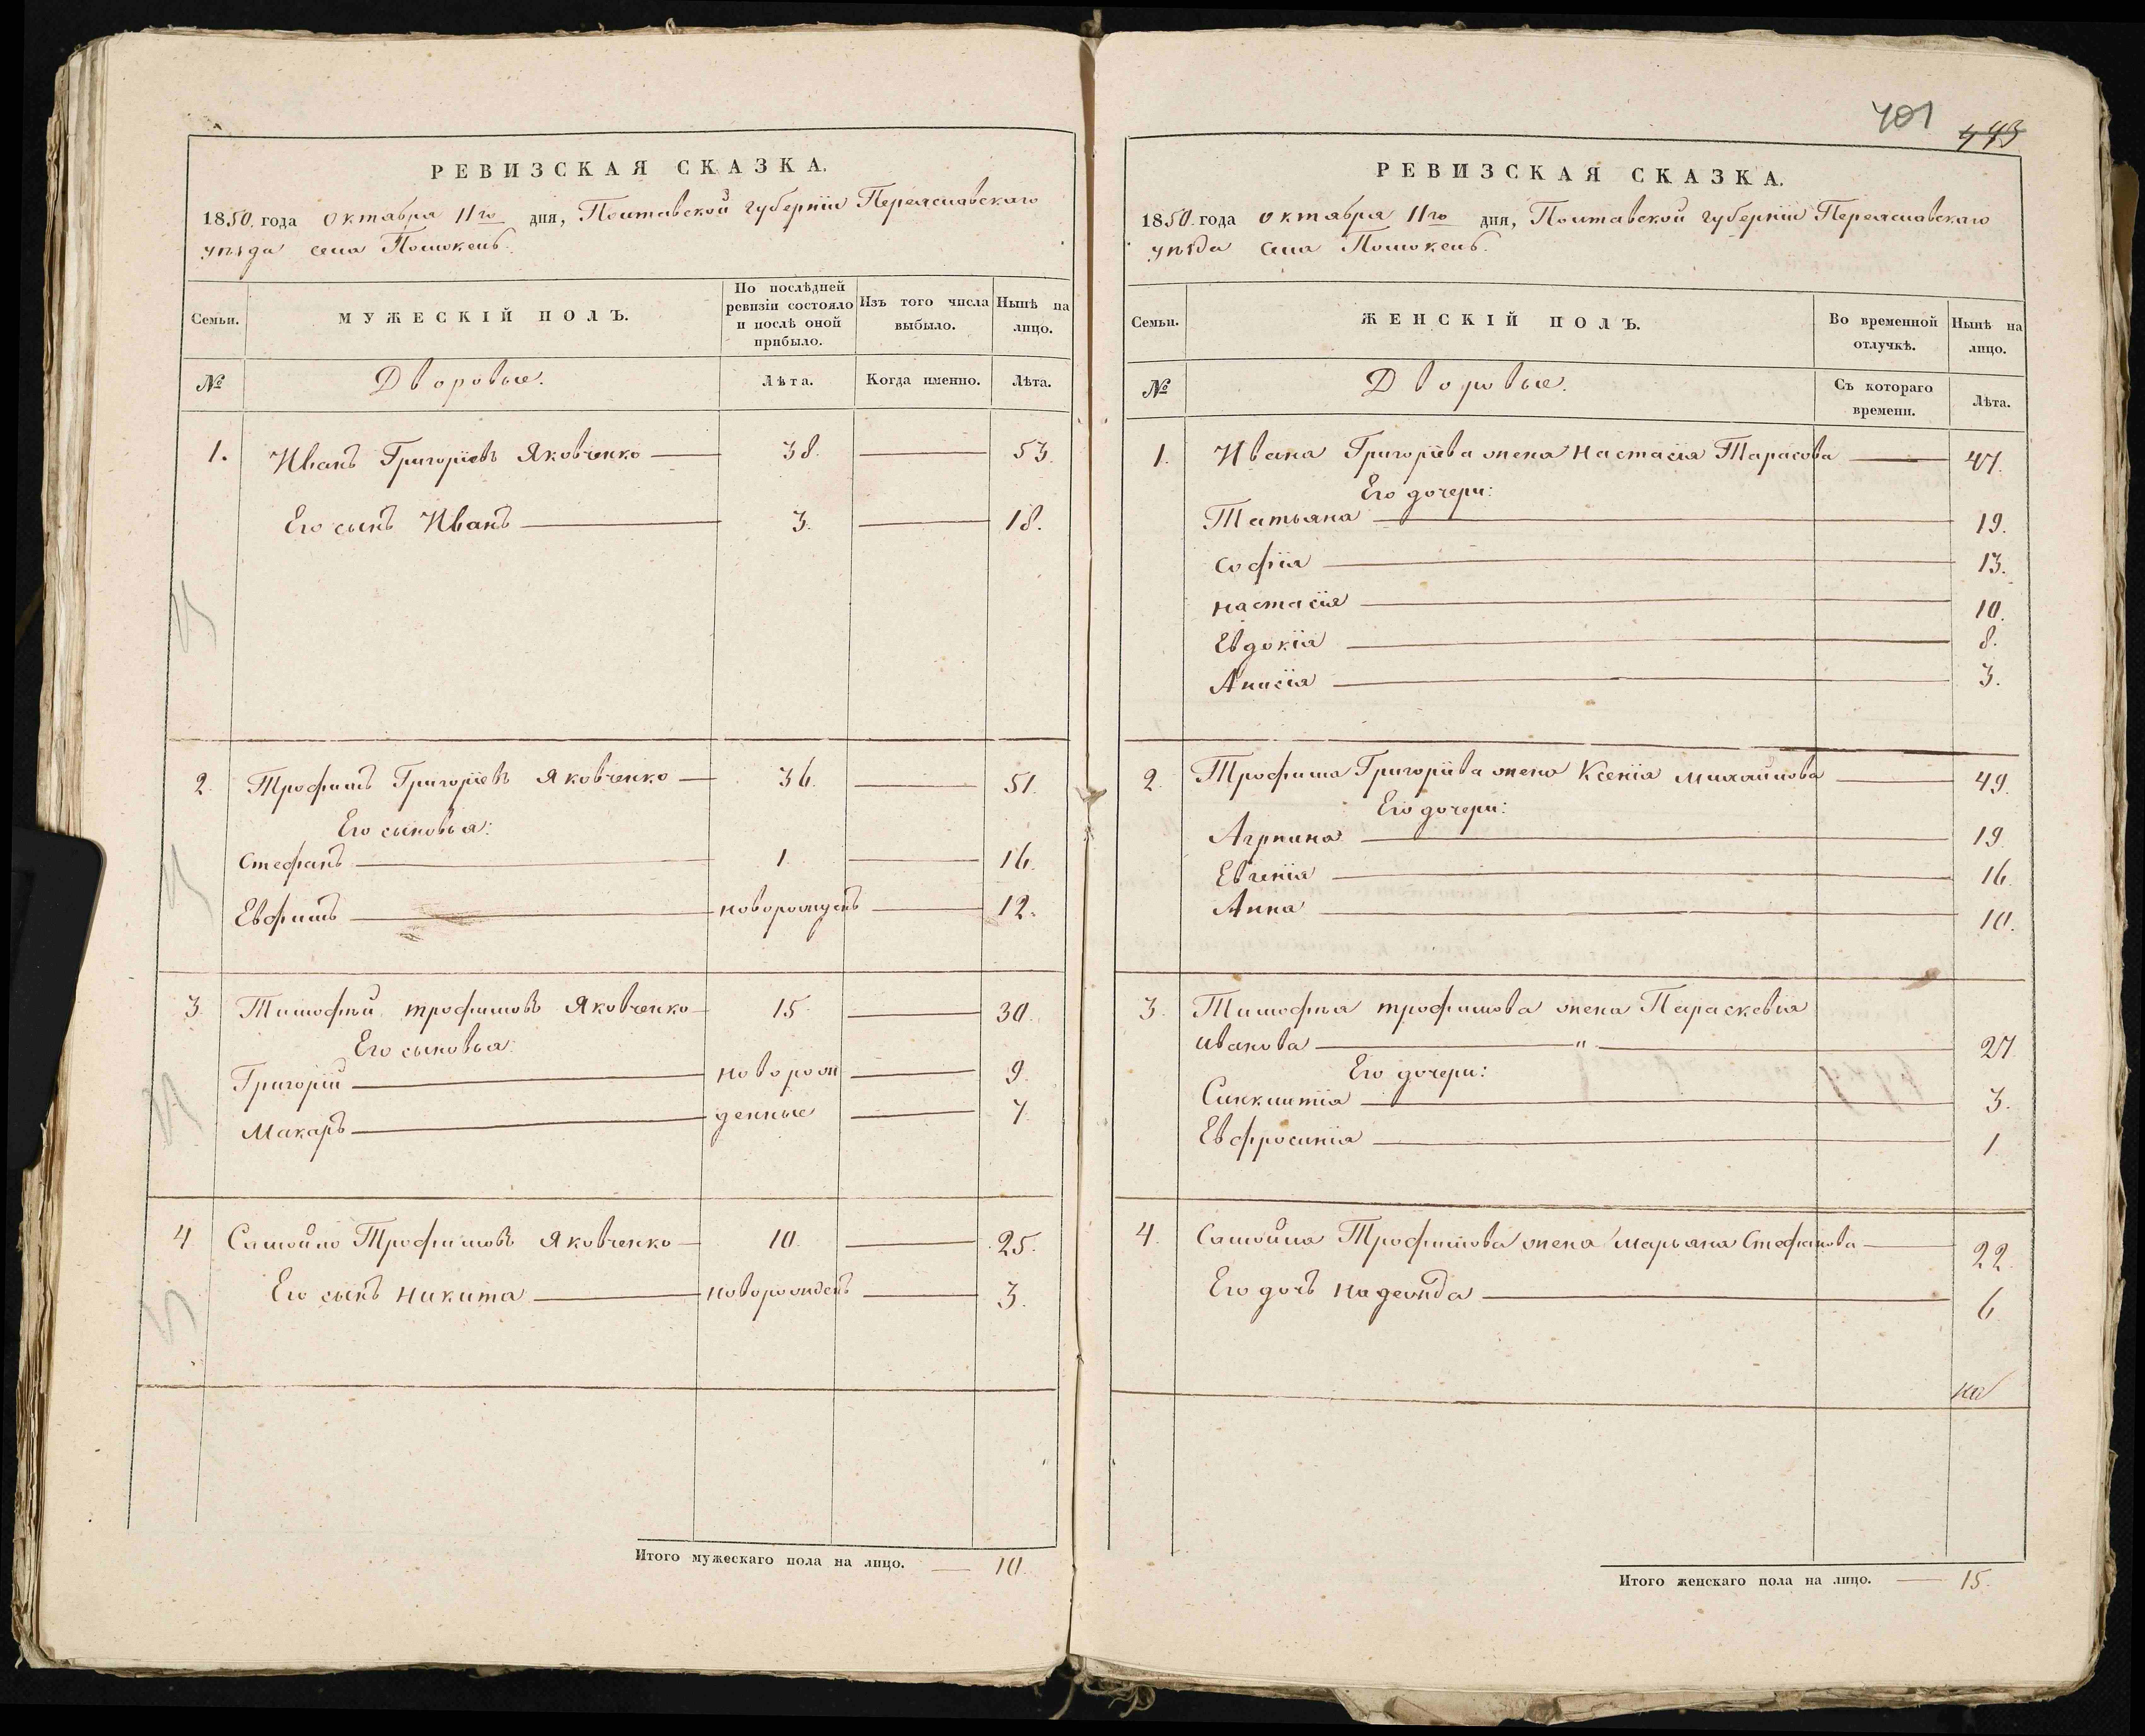 РЕВИЗСКАЯ СКАЗКА.
1850. года октября 11го дня, Полтавской губерніи Переяславскаго
уѣзда села Помокель.
Семьи.
МУЖЕСКІЙ ПОЛЪ.
По послѣдней ревизіи состояло и послѣ оной прибыло.
Изъ того числа выбыло.
Нынѣ на лицо.
№
Дворовые.
Лѣта.
Когда именно.
Лѣта.
1. Иванъ Григоріевъ Яковченко 38. 53.
Его сынъ Иванъ 3. 18.
2. Трофимъ Григоріевъ Яковченко 36. 51.
Его сыновья:
Стефанъ 1. 16.
Евфимъ новорожденъ 12.
3. Тимофѣй трофимовъ Яковченко 15. 30.
Его сыновья:
Григорій новорож 9.
Макаръ денные 7.
4 Самойло Трофимовъ Яковченко 10. 25.
Его сынъ Никита новорожденъ 3.
Итого мужескаго пола на лицо. 10.
701
443
РЕВИЗСКАЯ СКАЗКА.
1850. года октября 11го дня, Полтавской губерніи Переяславскаго
уѣзда села Помокель.
Семьи.
ЖЕНСКІЙ ПОЛЪ.
Во временной отлучкѣ.
Нынѣ на лицо.
№
Дворовые.
Съ котораго времени.
Лѣта.
1. Ивана Григоріева жена Настасія Тарасова 47.
Его дочери:
Татьяна 19.
Софія 13.
Настасія 10.
Евдокія 8.
Анисія 3.
2. Трофима Григоріева жена Ксенія Михайлова 49.
Его дочери:
Агрпина 19.
Евгенія 16.
Анна 10.
3. Тимофѣя трофимова жена Параскевія
Иванова " 27.
Его дочери:
Синклитія 3.
Евфросинія 1
4. Самойла Трофимова жена Марьяна Стефанова 22.
Его дочь Надежда 6
Итого женскаго пола на лицо. 15.